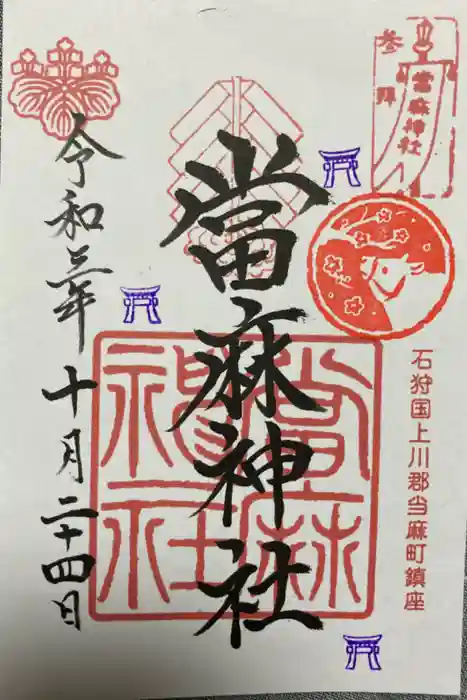 参拝
當麻神社
當麻神社
當麻神社
石狩国上川郡当麻町鎮座
令和三年十月二十四日